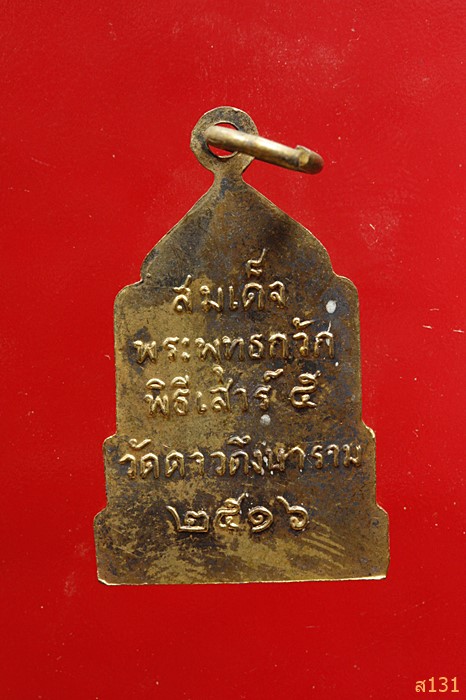 สมเด็จ
พระพุทธกวัก
พิธีเสาร์ ๕
วัดดาวดึงษาราม
๒๕๑๖
ส131